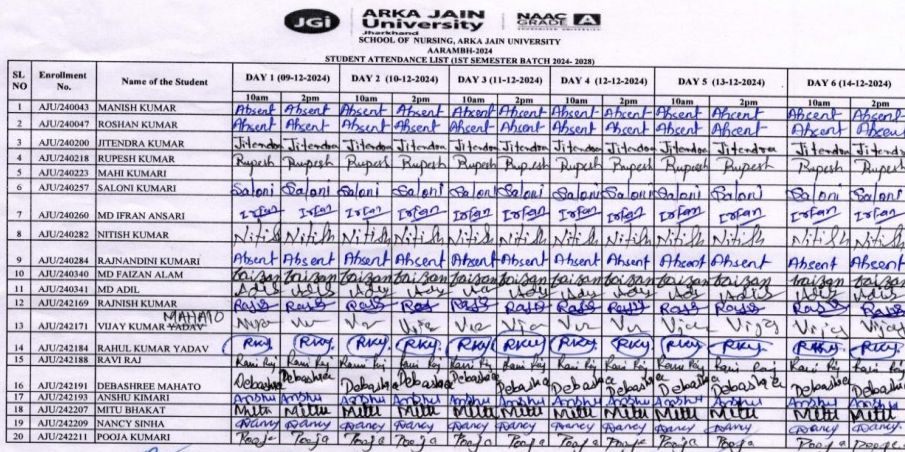 JGi ARKA JAIN University Jharkhand NAAC GRADE A
SCHOOL OF NURSING, ARKA JAIN UNIVERSITY
AARAMBH-2024
STUDENT ATTENDANCE LIST (1ST SEMESTER BATCH 2024- 2028)
SL NO Enrollment No. Name of the Student DAY 1 (09-12-2024) DAY 2 (10-12-2024) DAY 3 (11-12-2024) DAY 4 (12-12-2024) DAY 5 (13-12-2024) DAY 6 (14-12-2024)
10am 2pm 10am 2pm 10am 2pm 10am 2pm 10am 2pm 10am 2pm
1 AJU/240043 MANISH KUMAR Absent Absent Absent Absent Absent Absent Absent Absent Absent Absent Absent Absent
2 AJU/240047 ROSHAN KUMAR Absent Absent Absent Absent Absent Absent Absent Absent Absent Absent Absent Absent
3 AJU/240200 JITENDRA KUMAR Jitendra Jitendra Jitendra Jitendra Jitendra Jitendra Jitendra Jitendra Jitendra Jitendra Jitendra Jitendra
4 AJU/240218 RUPESH KUMAR Rupesh Rupesh Rupesh Rupesh Rupesh Rupesh Rupesh Rupesh Rupesh Rupesh Rupesh Rupesh
5 AJU/240223 MAHI KUMARI
6 AJU/240257 SALONI KUMARI Saloni Saloni Saloni Saloni Saloni Saloni Saloni Saloni Saloni Saloni Saloni Saloni
7 AJU/240260 MD IFRAN ANSARI Irfan Irfan Irfan Irfan Irfan Irfan Irfan Irfan Irfan Irfan Irfan Irfan
8 AJU/240282 NITISH KUMAR Nitish Nitish Nitish Nitish Nitish Nitish Nitish Nitish Nitish Nitish Nitish Nitish
9 AJU/240284 RAJNANDINI KUMARI Absent Absent Absent Absent Absent Absent Absent Absent Absent Absent Absent Absent
10 AJU/240340 MD FAIZAN ALAM faizan faizan faizan faizan faizan faizan faizan faizan faizan faizan faizan faizan
11 AJU/240341 MD ADIL
12 AJU/242169 RAJNISH KUMAR
MAHATO
13 AJU/242171 VIJAY KUMAR YADAV Vijay
14 AJU/242184 RAHUL KUMAR YADAV RKY RKY RKY RKY RKY RKY RKY RKY RKY RKY RKY RKY
15 AJU/242188 RAVI RAJ Ravi Raj Ravi Raj Ravi Raj Ravi Raj Ravi Raj Ravi Raj Ravi Raj Ravi Raj Ravi Raj Ravi Raj Ravi Raj Ravi Raj
16 AJU/242191 DEBASHREE MAHATO Debashree Debashree
17 AJU/242193 ANSHU KIMARI Anshu Anshu Anshu Anshu Anshu Anshu Anshu Anshu Anshu Anshu Anshu Anshu
18 AJU/242207 MITU BHAKAT Mitu Mitu Mitu Mitu Mitu Mitu Mitu Mitu Mitu Mitu Mitu Mitu
19 AJU/242209 NANCY SINHA Nancy Nancy Nancy Nancy Nancy Nancy Nancy Nancy Nancy Nancy Nancy Nancy
20 AJU/242211 POOJA KUMARI Pooja Pooja Pooja Pooja Pooja Pooja Pooja Pooja Pooja Pooja Pooja Pooja